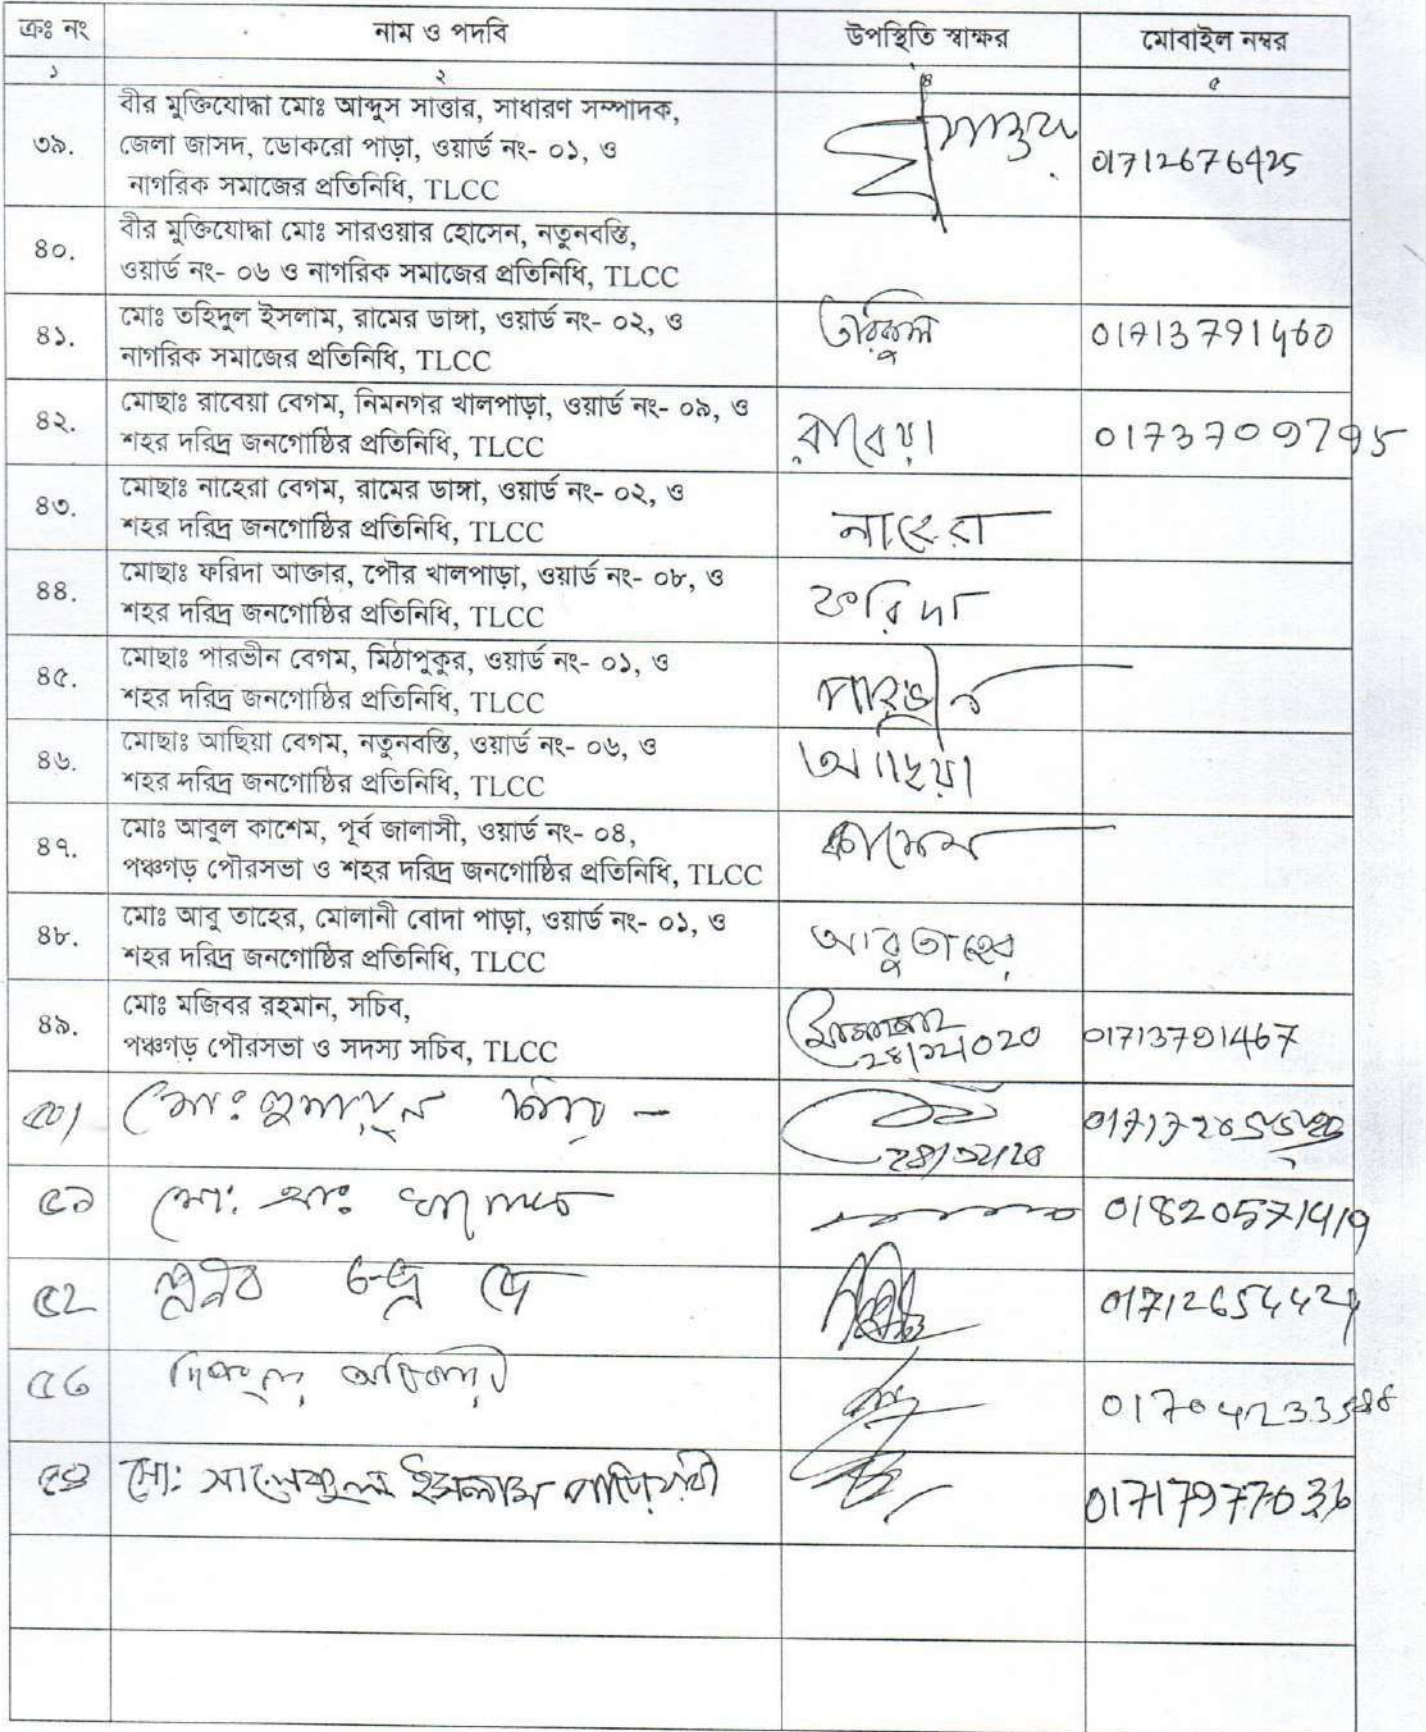 ক্রঃ নং নাম ও পদবি উপস্থিতি স্বাক্ষর মোবাইল নম্বর
১ ২ ৪ ৫
বীর মুক্তিযোদ্ধা মোঃ আব্দুস সাত্তার, সাধারণ সম্পাদক,
৩৯. জেলা জাসদ, ডোকরো পাড়া, ওয়ার্ড নং- ০১, ও 01712676425
নাগরিক সমাজের প্রতিনিধি, TLCC
বীর মুক্তিযোদ্ধা মোঃ সারওয়ার হোসেন, নতুনবস্তি,
৪০. ওয়ার্ড নং- ০৬ ও নাগরিক সমাজের প্রতিনিধি, TLCC
মোঃ তহিদুল ইসলাম, রামের ডাঙ্গা, ওয়ার্ড নং- ০২, ও
৪১. নাগরিক সমাজের প্রতিনিধি, TLCC 01713791460
মোছাঃ রাবেয়া বেগম, নিমনগর খালপাড়া, ওয়ার্ড নং- ০৯, ও
৪২. শহর দরিদ্র জনগোষ্ঠির প্রতিনিধি, TLCC রাবেয়া 01737709795
মোছাঃ নাহেরা বেগম, রামের ডাঙ্গা, ওয়ার্ড নং- ০২, ও
৪৩. শহর দরিদ্র জনগোষ্ঠির প্রতিনিধি, TLCC নাহেরা
মোছাঃ ফরিদা আক্তার, পৌর খালপাড়া, ওয়ার্ড নং- ০৮, ও
৪৪. শহর দরিদ্র জনগোষ্ঠির প্রতিনিধি, TLCC ফরিদা
মোছাঃ পারভীন বেগম, মিঠাপুকুর, ওয়ার্ড নং- ০১, ও
৪৫. শহর দরিদ্র জনগোষ্ঠির প্রতিনিধি, TLCC পারভীন
মোছাঃ আছিয়া বেগম, নতুনবস্তি, ওয়ার্ড নং- ০৬, ও
৪৬. শহর দরিদ্র জনগোষ্ঠির প্রতিনিধি, TLCC আছিয়া
মোঃ আবুল কাশেম, পূর্ব জালাসী, ওয়ার্ড নং- ০৪,
৪৭. পঞ্চগড় পৌরসভা ও শহর দরিদ্র জনগোষ্ঠির প্রতিনিধি, TLCC কাসেম
মোঃ আবু তাহের, মোলানী বোদা পাড়া, ওয়ার্ড নং- ০১, ও
৪৮. শহর দরিদ্র জনগোষ্ঠির প্রতিনিধি, TLCC আবু তাহের
মোঃ মজিবর রহমান, সচিব,
৪৯. পঞ্চগড় পৌরসভা ও সদস্য সচিব, TLCC 01713791467
৫০। মোঃ হুমায়ুন
৫১ মোঃ 01820571419
৫২ চন্দ্র দে
৫৩
৫৪ মোঃ সালেকুল ইসলাম 01717977036